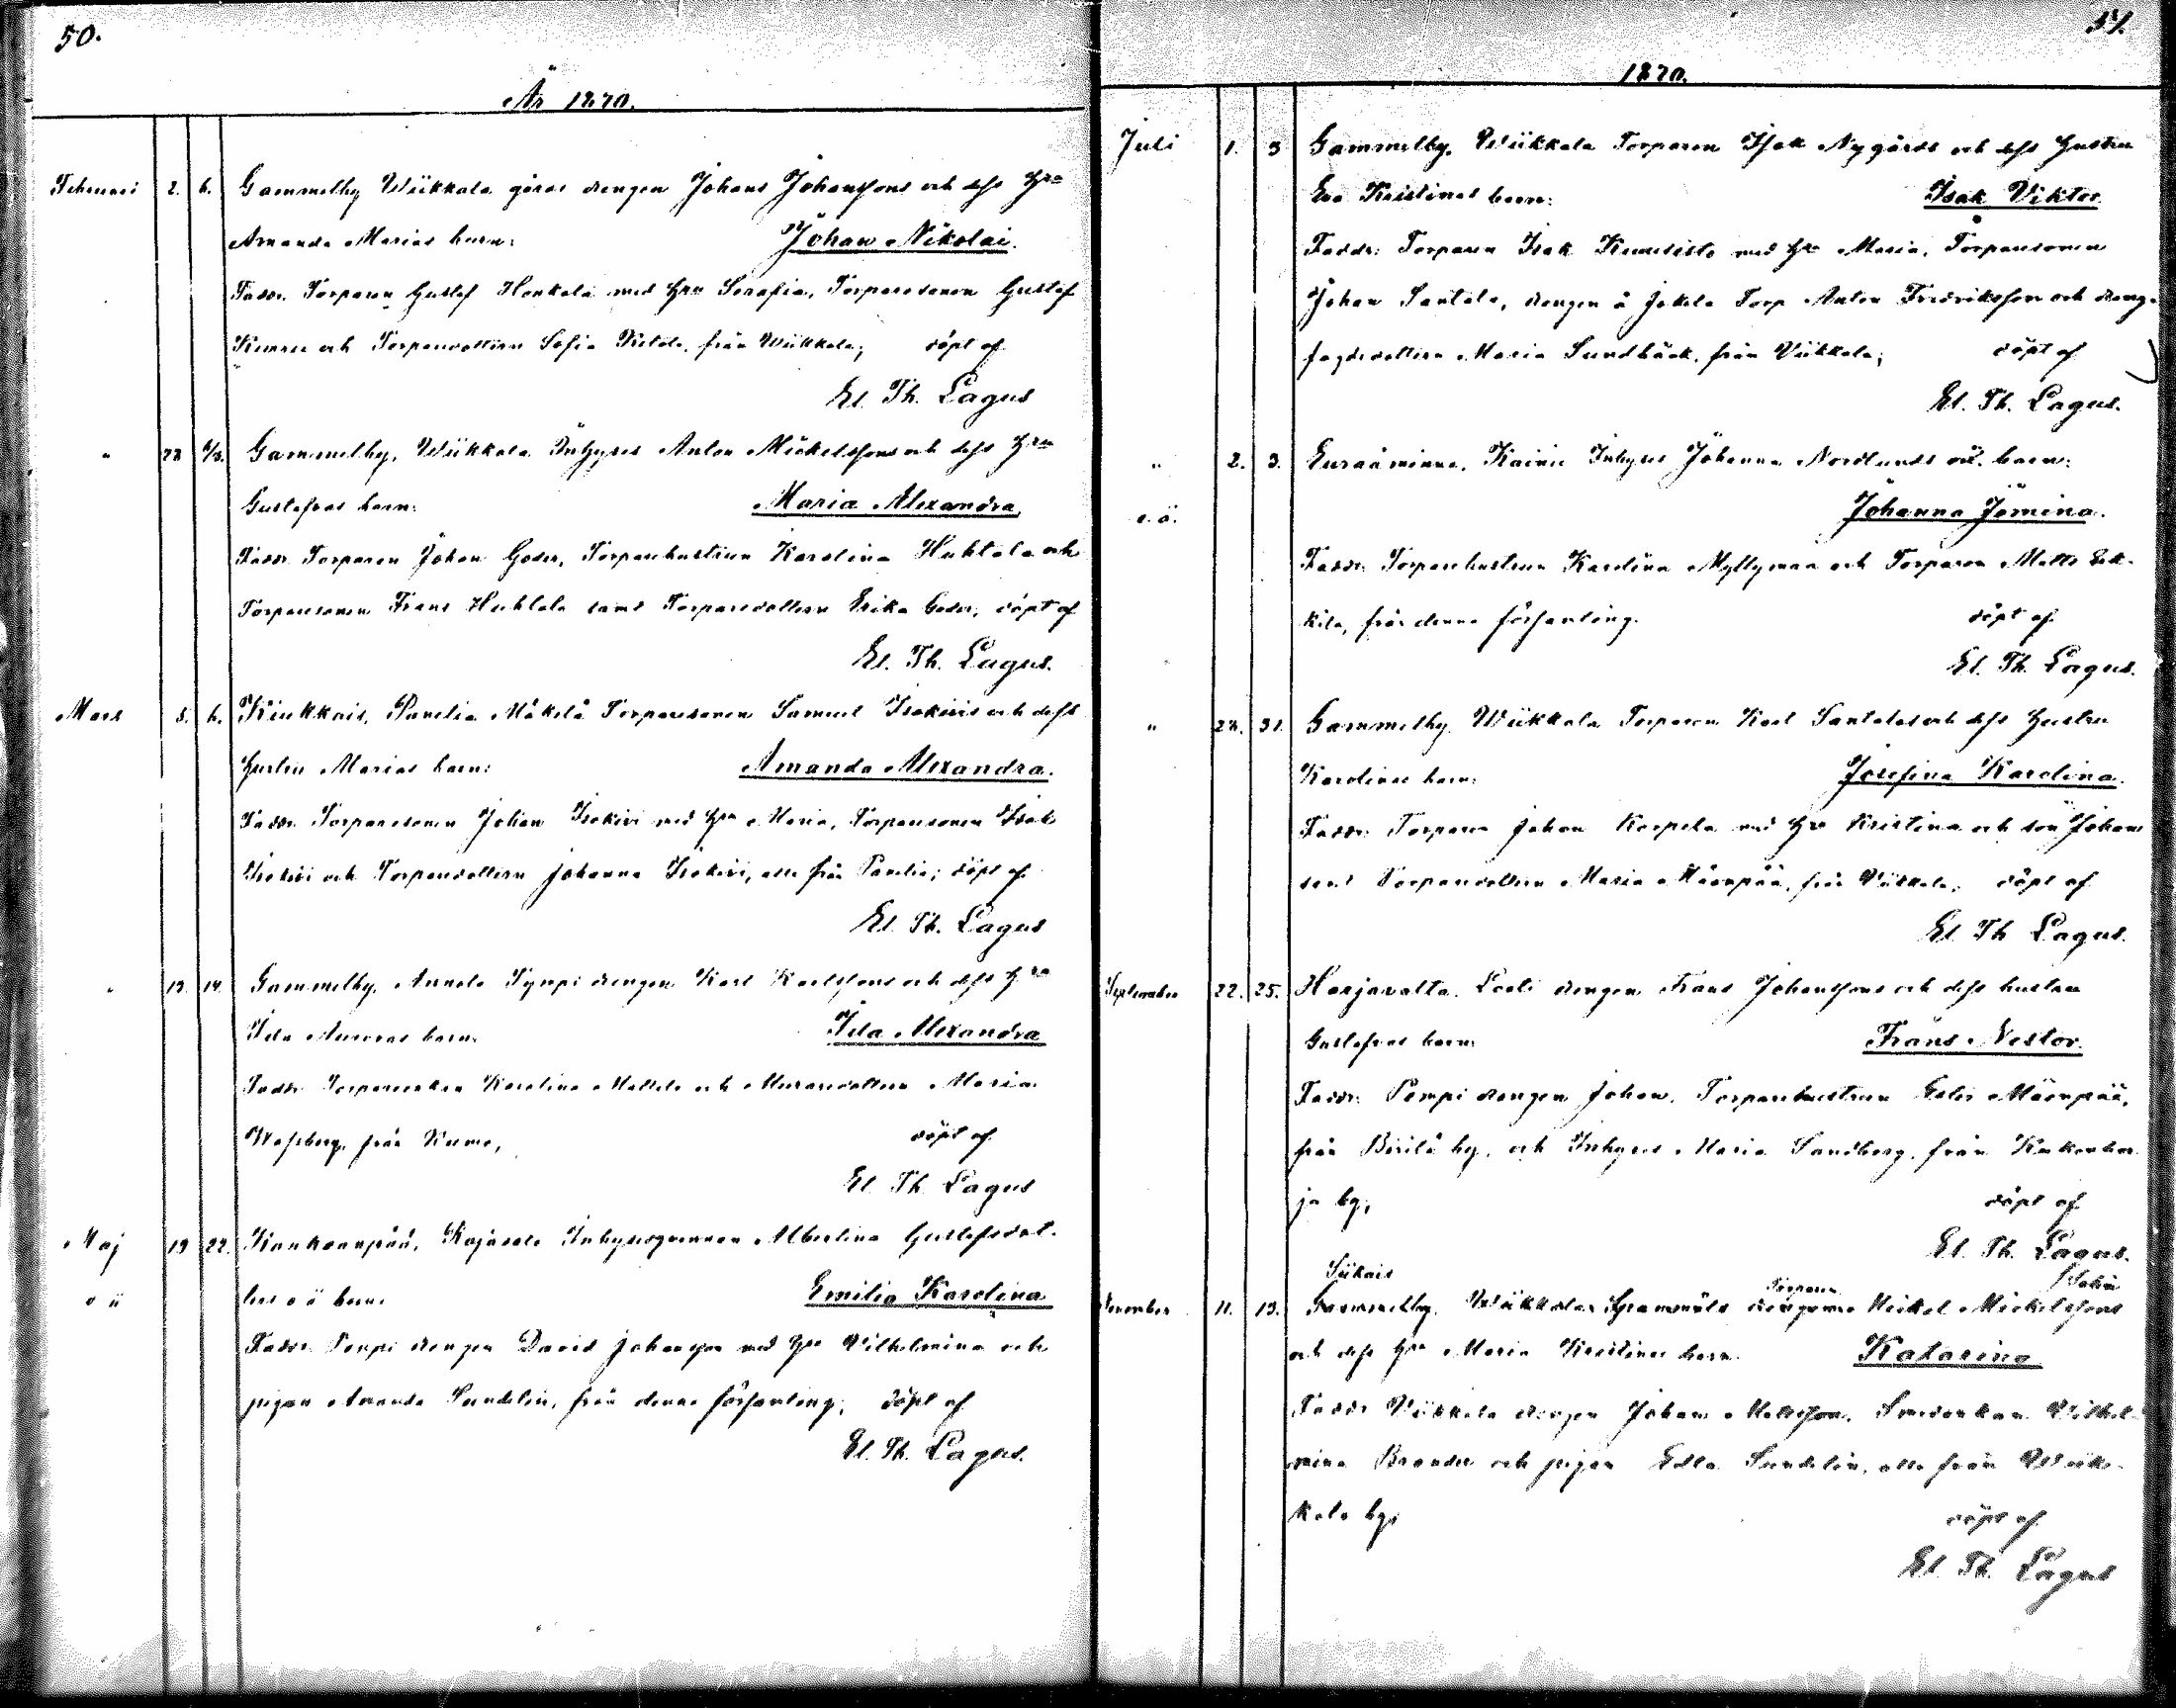 50.
År 1870.
Februari 2. 6. Gammelby Wiikkala gårds drengen Johans Johanssons och dess Hru
Amanda Marias barn: Johan Nikolai.
Faddr. Torparen Gustef Honkala med Hru Serafia, Torparesonen Gustaf
och Torparedottren Sofia från Wiikkala; döpt af
El. Th. Lagus
" Gammelby, Wiikkala Inhyses Anton Mickelssons och dess Hru
Gustafvas barn: Maria Alexandra
Faddr. Torparen Johan Goder, Torparehustrun Karolina Huhtala och
Torparesonen Frans Huhtala samt Torparedottren Erika Goder, döpt af
El. Th. Lagus.
Mars 5. 6. Kiukkais, Panelia Mäkelä Torparesonen Samuel Isokivis och dess
Hustru Marias barn: Amanda Alexandra.
Faddr. Torparesonen Johan Isokivi med Hru Maria, Torparesonen Isak
Isokivi och Torparedottren Johanna Isokivi, alla från Panelia; döpt af
El. Th. Lagus
" 13. 14. Gammelby, Annola Tynpi drengen Karl Karlssons och dess Hru
Ida Auroras barn: Ida Alexandra
Faddr. Torpareenkan Karolina Mattila och Muraredottren Maria
Wassberg, från Kumo, döpt af
El. Th. Lagus
Maj 19 22. Kankaanpää, Kojasola Inhysesqvinnan Albertina Gustafsdot-
o ä ters o ä barn: Emilia Karolina
Faddr. Pempi drengen David Johansson med Hru Wilhelmina och
pigan Amanda Sundelin, från denna församling; döpt af
El. Th. Lagus.
51.
1870.
Juli 1. 3 Gammelby, Wiikkala Torparen Isak Nygårds och dess Hustru
Eva Kristinas barn: Isak Viktor
Faddr: Torparen Isak med Hru Maria, Torparesonen
Johan Santala, drengen å Jokela Torp Anton Fredriksson och dreng-
fogdedottren Maria Sundbäck, från Viikkala; döpt af
El. Th. Lagus.
" 2. 3. Euraåminne, Kainu Inhyses Johanna Nordlunds oä. barn:
o. ä. Johanna Jömina.
Faddr: Torparehustrun Karolina Myllymaa och Torparen Matts
kila, från denna församling. döpt af
El. Th. Lagus.
" 24. 31. Gammelby Wiikkala Torparen Karl Santalas och dess Hustru
Karolinas barn: Josefina Karolina.
Faddr: Torparen Johan Korpela med Hru Kristina och son Johan
samt Torparedottren Maria Mäenpää, från Viikkala; döpt af
El. Th Lagus.
September 22. 25. Harjavalta. Leoli drengen Frans Johanssons och dess hustru
Gustafvas barn: Frans Nestor.
Faddr: Pempi drengen Johan, Torparehustrun Mäenpää,
från Pirilä by, och Inhyses Maria Sandberg, från Kukonhar-
ja by; döpt af
El. Th. Lagus.
Siikais Torparen Sakin
November 11. 13. Gammelby. Wiikkala Gammnäls drengens Mickel Mickelssons
och dess Hru Maria Kristinas barn. Katarina
Faddr Viikkala drengen Johan Mattsson, Smedenkan Wilhel-
mina Brander och pigan Edla Sundelin, alla från Wiik-
kala by; döpt af
El. Th. Lagus